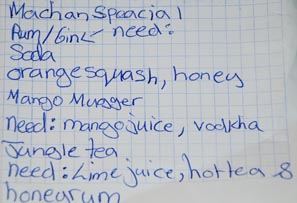 Machan Speacial
Rum/Gin need:
Soda
orange squash, honey
Mango Mugger
need: mango juice, vodkha
Jungle tea
need: Lime juice, hot tea &
honey rum